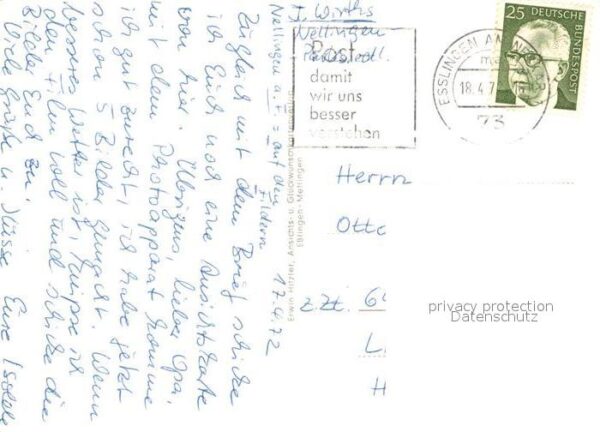 I. Wirths
Nellingen-
Parksiedl.
Post
damit
wir uns
besser
verstehen
ESSLINGEN AM NECKAR
18.4.72
73
25 DEUTSCHE
BUNDESPOST
Nellingen a.F. = auf den
Fildern
17.4.72
Zugleich mit dem Brief schicke
ich Euch noch eine Ansichtskarte
von hier. Übrigens, lieber Opa,
mit dem Photoapparat komme
ich gut zurecht, ich habe jetzt
schon 5 Bilder gemacht. Wenn
besseres Wetter ist, knipse ich
den Film voll und schicke die
Bilder Euch zu.
Viele Grüße u. Küsse Eure Isolde
Erwin Hitzler, Ansichts- u. Glückwunschkartenverlag
Eßlingen-Mettingen
Herrn
Otto
z.Zt. 64
L
H
privacy protection
Datenschutz